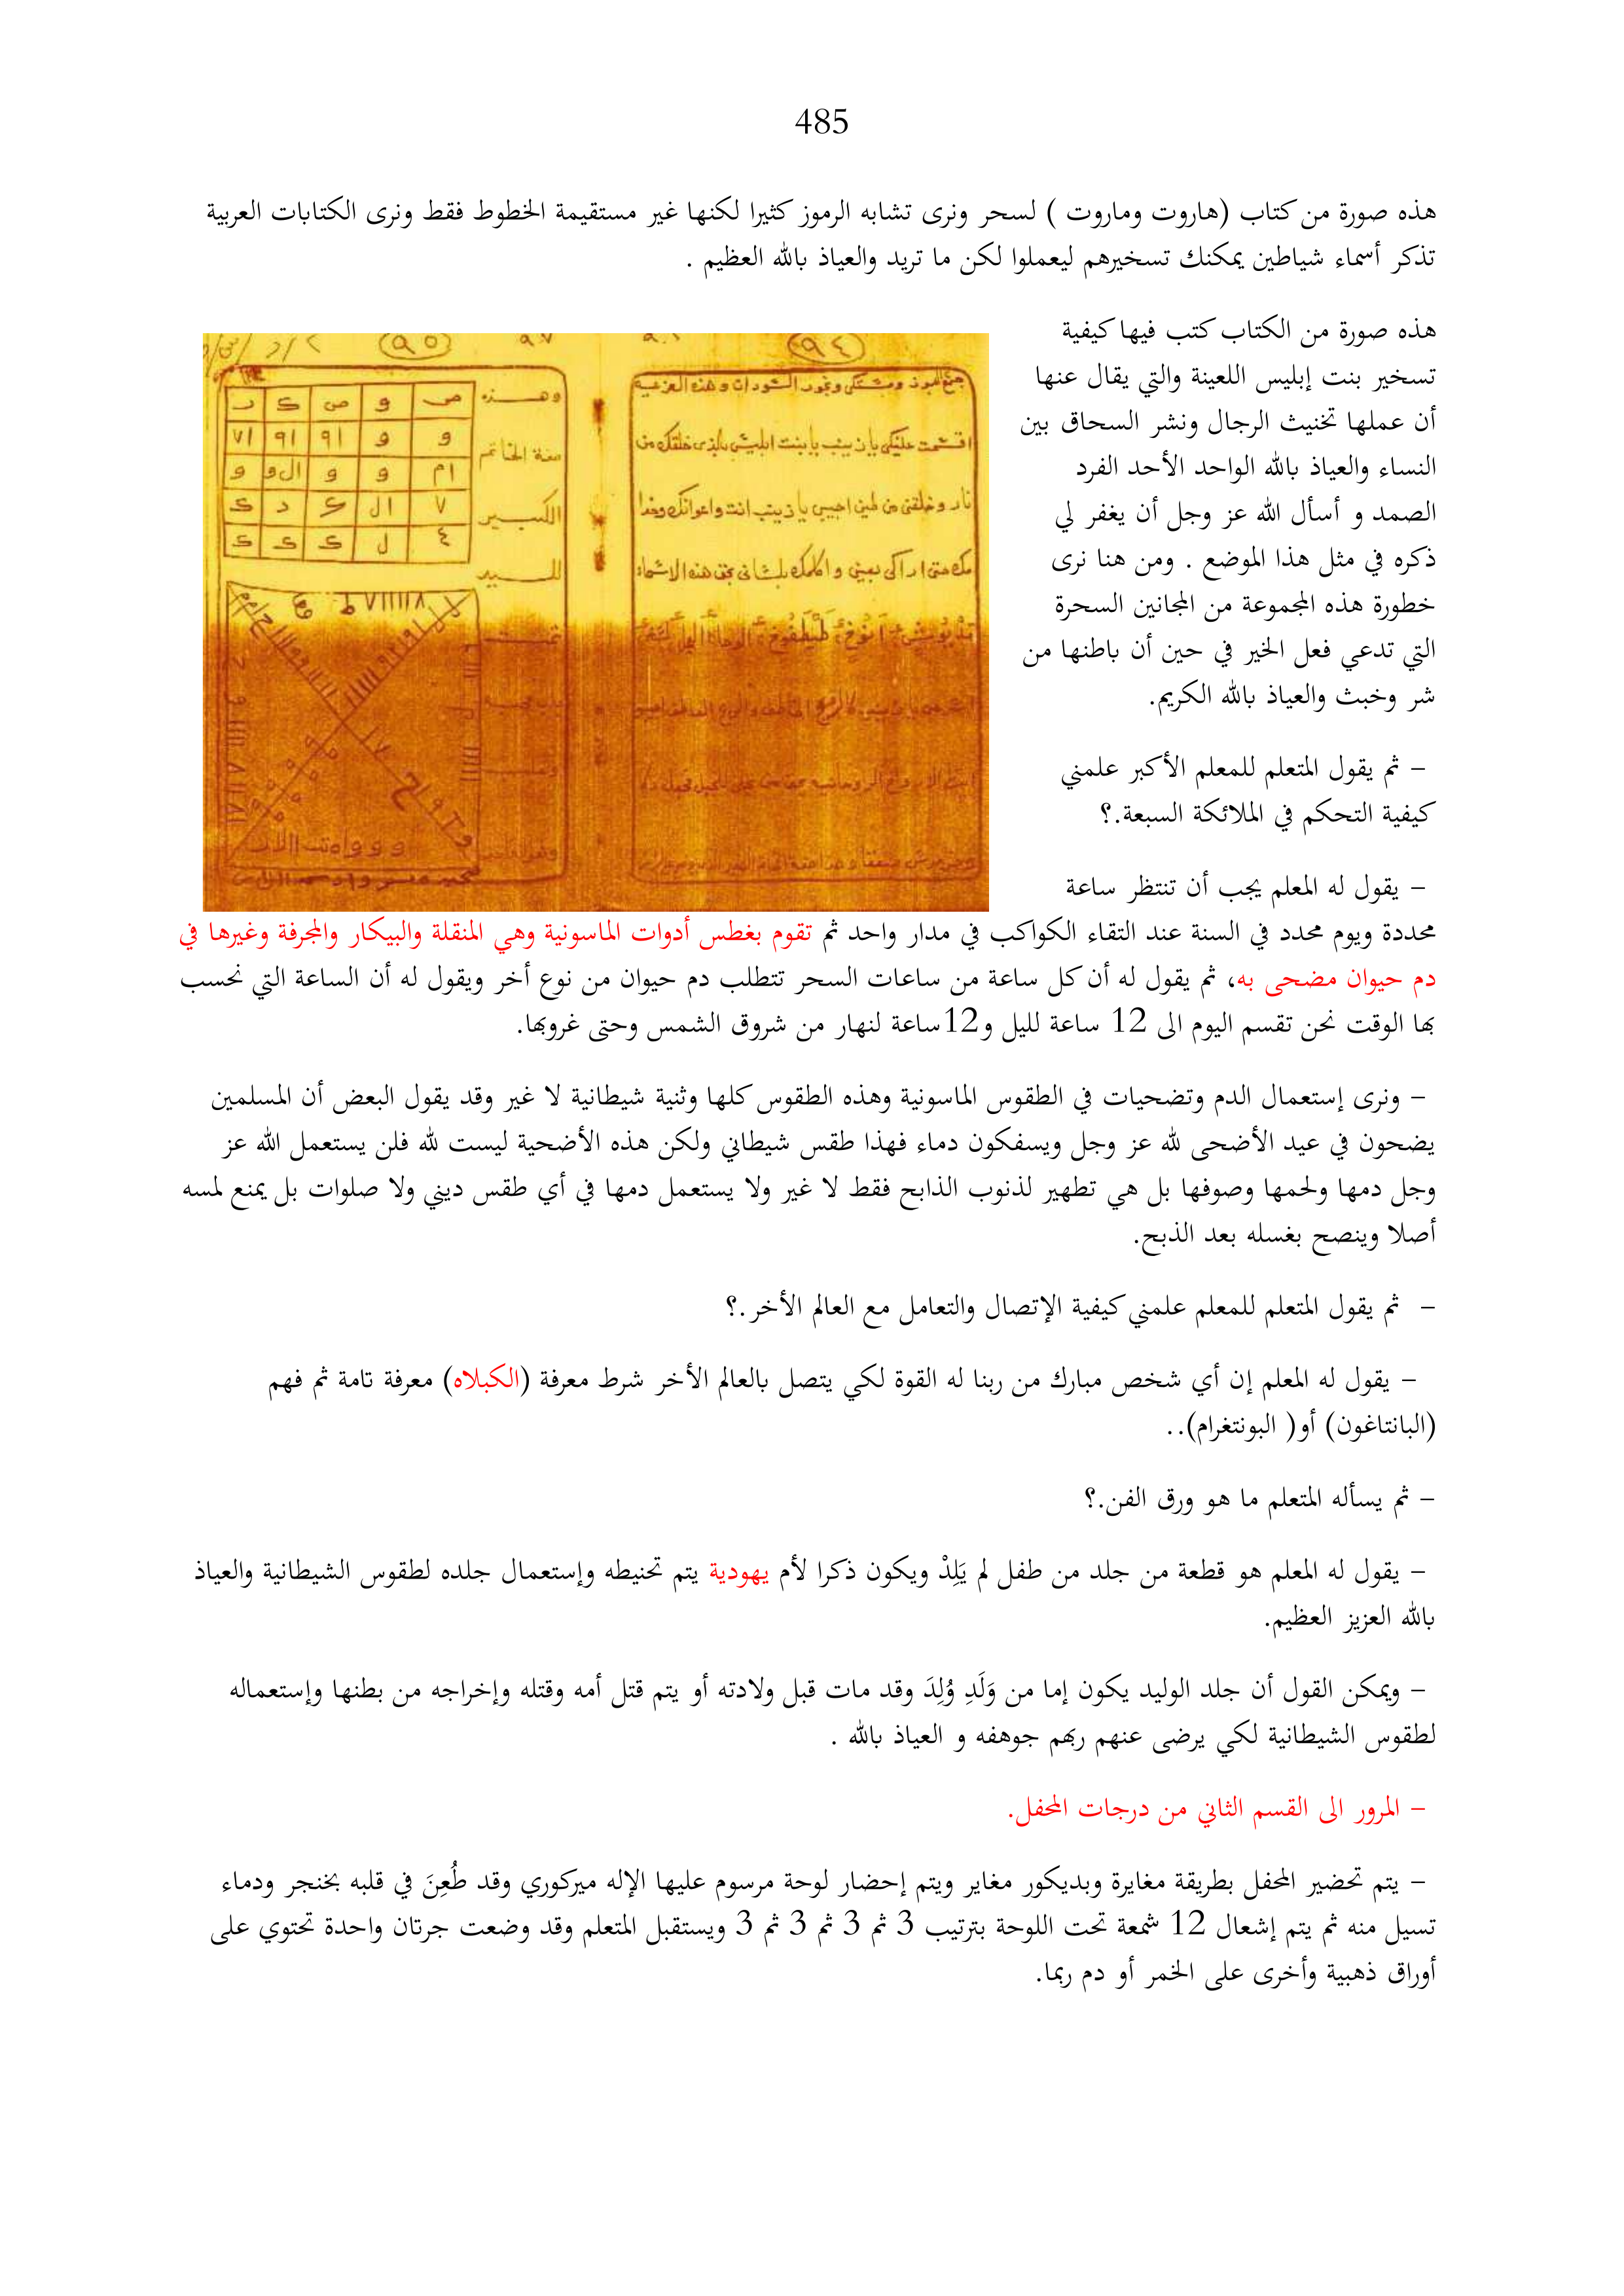 485
هذه صورة من كتاب (هاروت وماروت ) لسحر ونرى تشابه الرموز كثيرا لكنها غير مستقيمة الخطوط فقط ونرى الكتابات العربية
تذكر أسماء شياطين يمكنك تسخيرهم ليعملوا لكن ما تريد والعياذ بالله العظيم .
هذه صورة من الكتاب كتب فيها كيفية
تسخير بنت إبليس اللعينة والتي يقال عنها
أن عملها تخنيث الرجال ونشر السحاق بين
النساء والعياذ بالله الواحد الأحد الفرد
الصمد و أسأل الله عز وجل أن يغفر لي
ذكره في مثل هذا الموضع . ومن هنا نرى
خطورة هذه المجموعة من المجانين السحرة
التي تدعي فعل الخير في حين أن باطنها من
شر وخبث والعياذ بالله الكريم.
– ثم يقول المتعلم للمعلم الأكبر علمني
كيفية التحكم في الملائكة السبعة.؟
– يقول له المعلم يجب أن تنتظر ساعة
محددة ويوم محدد في السنة عند التقاء الكواكب في مدار واحد ثم تقوم بغطس أدوات الماسونية وهي المنقلة والبيكار والمجرفة وغيرها في
دم حيوان مضحى به، ثم يقول له أن كل ساعة من ساعات السحر تتطلب دم حيوان من نوع أخر ويقول له أن الساعة التي نحسب
بها الوقت نحن تقسم اليوم الى 12 ساعة لليل و12ساعة لنهار من شروق الشمس وحتى غروبها.
– ونرى إستعمال الدم وتضحيات في الطقوس الماسونية وهذه الطقوس كلها وثنية شيطانية لا غير وقد يقول البعض أن المسلمين
يضحون في عيد الأضحى لله عز وجل ويسفكون دماء فهذا طقس شيطاني ولكن هذه الأضحية ليست لله فلن يستعمل الله عز
وجل دمها ولحمها وصوفها بل هي تطهير لذنوب الذابح فقط لا غير ولا يستعمل دمها في أي طقس ديني ولا صلوات بل يمنع لمسه
أصلا وينصح بغسله بعد الذبح.
– ثم يقول المتعلم للمعلم علمني كيفية الإتصال والتعامل مع العالم الأخر.؟
– يقول له المعلم إن أي شخص مبارك من ربنا له القوة لكي يتصل بالعالم الأخر شرط معرفة (الكبلاه) معرفة تامة ثم فهم
(البانتاغون) أو( البونتغرام)..
– ثم يسأله المتعلم ما هو ورق الفن.؟
– يقول له المعلم هو قطعة من جلد من طفل لم يَلِدْ ويكون ذكرا لأم يهودية يتم تحنيطه وإستعمال جلده لطقوس الشيطانية والعياذ
بالله العزيز العظيم.
– ويمكن القول أن جلد الوليد يكون إما من وَلَدِ وُلِدَ وقد مات قبل ولادته أو يتم قتل أمه وقتله وإخراجه من بطنها وإستعماله
لطقوس الشيطانية لكي يرضى عنهم ربهم جوهفه و العياذ بالله .
– المرور الى القسم الثاني من درجات المحفل.
– يتم تحضير المحفل بطريقة مغايرة وبديكور مغاير ويتم إحضار لوحة مرسوم عليها الإله ميركوري وقد طُعِنَ في قلبه بخنجر ودماء
تسيل منه ثم يتم إشعال 12 شمعة تحت اللوحة بترتيب 3 ثم 3 ثم 3 ثم 3 ويستقبل المتعلم وقد وضعت جرتان واحدة تحتوي على
أوراق ذهبية وأخرى على الخمر أو دم ربما.